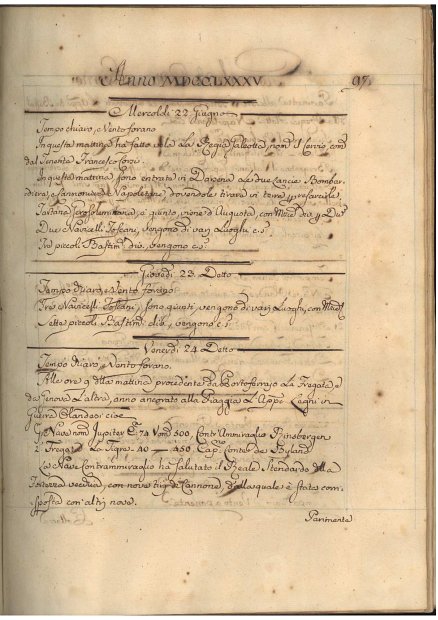 Anno MDCCLXXXV.
97.
Mercoldi 22 Giugno
Tempo chiaro, e Vento forano
In questa mattina ha fatto vela La Regia Galeotta nom.
dal Tenente Francesco
In questa mattina sono entrate in Darsena Le due Lancie Bombar-
diere, e Cannoniere Napoletane, dovendole tirare in terra p. resarcirle
Tartana Gerosolimitana, è giunta, viene d'Augusta, con
Due Navicelli Toscani, vengono di varj Luoghi c.s.
Tre piccoli Bastim. div. vengono c.s.
Giovedi 23 Detto
Tempo chiaro, e Vento forano
Tre Navicelli Toscani, sono giunti, vengono di varj Luoghi, con
Sette piccoli Bastim. div. vengono c.s.
Venerdi 24 Detto
Tempo chiaro, e Vento forano.
Alle ore 9 della mattina procedente da Portoferrajo La Fregata, e
da Genova L'altra, anno ancorato alla Piaggia Legni in
Guerra Olandesi cioè
Nave nom. Jupiter C. 74 Uom. 500, Contr'Ammiraglio Kinsbergen
Fregata La Tigre 40 — 450 Cap. Conte de Byland
La Nave Contrammiraglio ha salutato il Reale Stendardo della
Fortezza vecchia, con nove tiri di Cannone, dalla quale è stata com-
sposta con altri nove.
Parimente